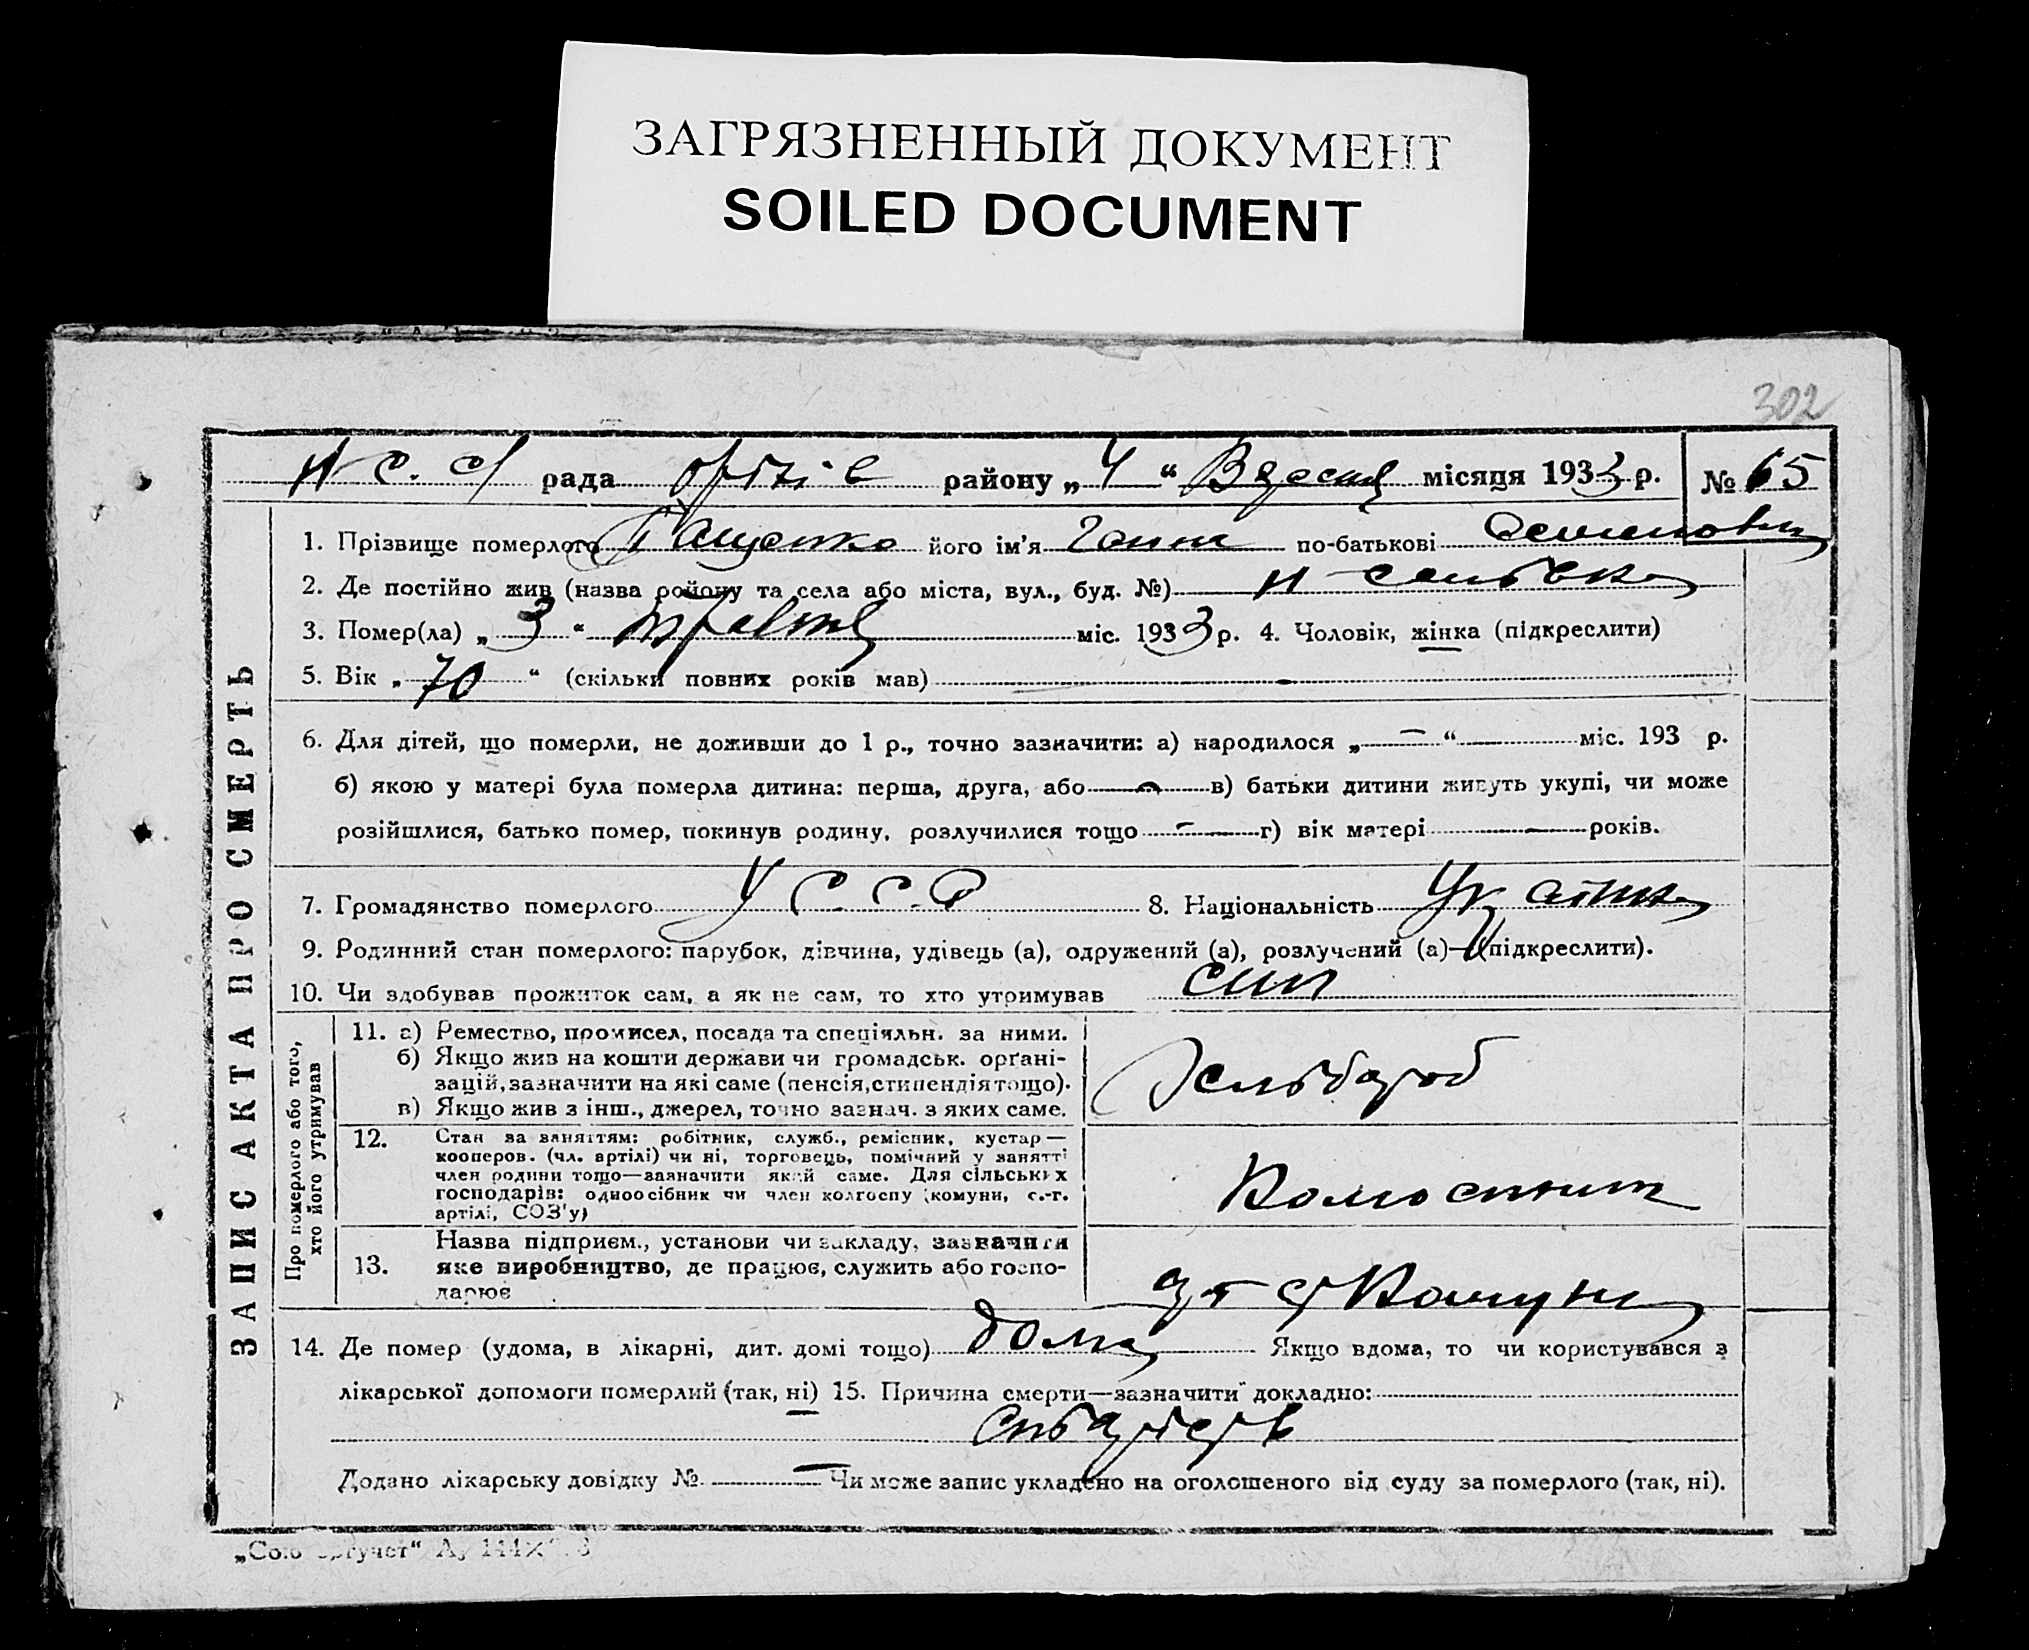 ЗАГРЯЗНЕННЫЙ ДОКУМЕНТ
SOILED DOCUMENT
302
рада району „ 4 “ Вересня місяця 1933 р. № 65
1. Прізвище померлого його ім'я Ганна по-батькові
2. Де постійно жив (назва району та села або міста, вул., буд. №)
3. Помер(ла) „ 3 “ травня міс. 1933 р. 4. Чоловік, жінка (підкреслити)
5. Вік „ 70 “ (скільки повних років мав)
6. Для дітей, що померли, не доживши до 1 р., точно зазначити: а) народилося „ — “ міс. 193 р.
б) якою у матері була померла дитина: перша, друга, або — в) батьки дитини живуть укупі, чи може
розійшлися, батько помер, покинув родину, розлучилися тощо — г) вік матері — років.
7. Громадянство померлого У С.С.Р 8. Національність Українка
9. Родинний стан померлого: парубок, дівчина, удівець (а), одружений (а), розлучений (а)—(підкреслити).
10. Чи здобував прожиток сам, а як не сам, то хто утримував син
ЗАПИС АКТА ПРО СМЕРТЬ
Про померлого або того,
хто його утримував
11. а) Ремество, промисел, посада та спеціяльн. за ними.
б) Якщо жив на кошти держави чи громадськ. орґані-
зацій, зазначити на які саме (пенсія, стипендія тощо).
в) Якщо жив з інш., джерел, точно зазнач. з яких саме.
12. Стан за заняттям: робітник, служб., ремісник, кустар—
кооперов. (чл. артілі) чи ні, торговець, помічний у занятті
член родини тощо—зазначити який саме. Для сільських
господарів: одноосібник чи член колгоспу (комуни, с.-г.
артілі, СОЗ'у)
Колгоспник
13. Назва підприєм., установи чи закладу, зазначити
яке виробництво, де працює, служить або госпо-
дарює
14. Де помер (удома, в лікарні, дит. домі тощо) дома Якщо вдома, то чи користувався з
лікарської допомоги померлий (так, ні) 15. Причина смерти—зазначити докладно:
Додано лікарську довідку № — Чи може запис укладено на оголошеного від суду за померлого (так, ні).